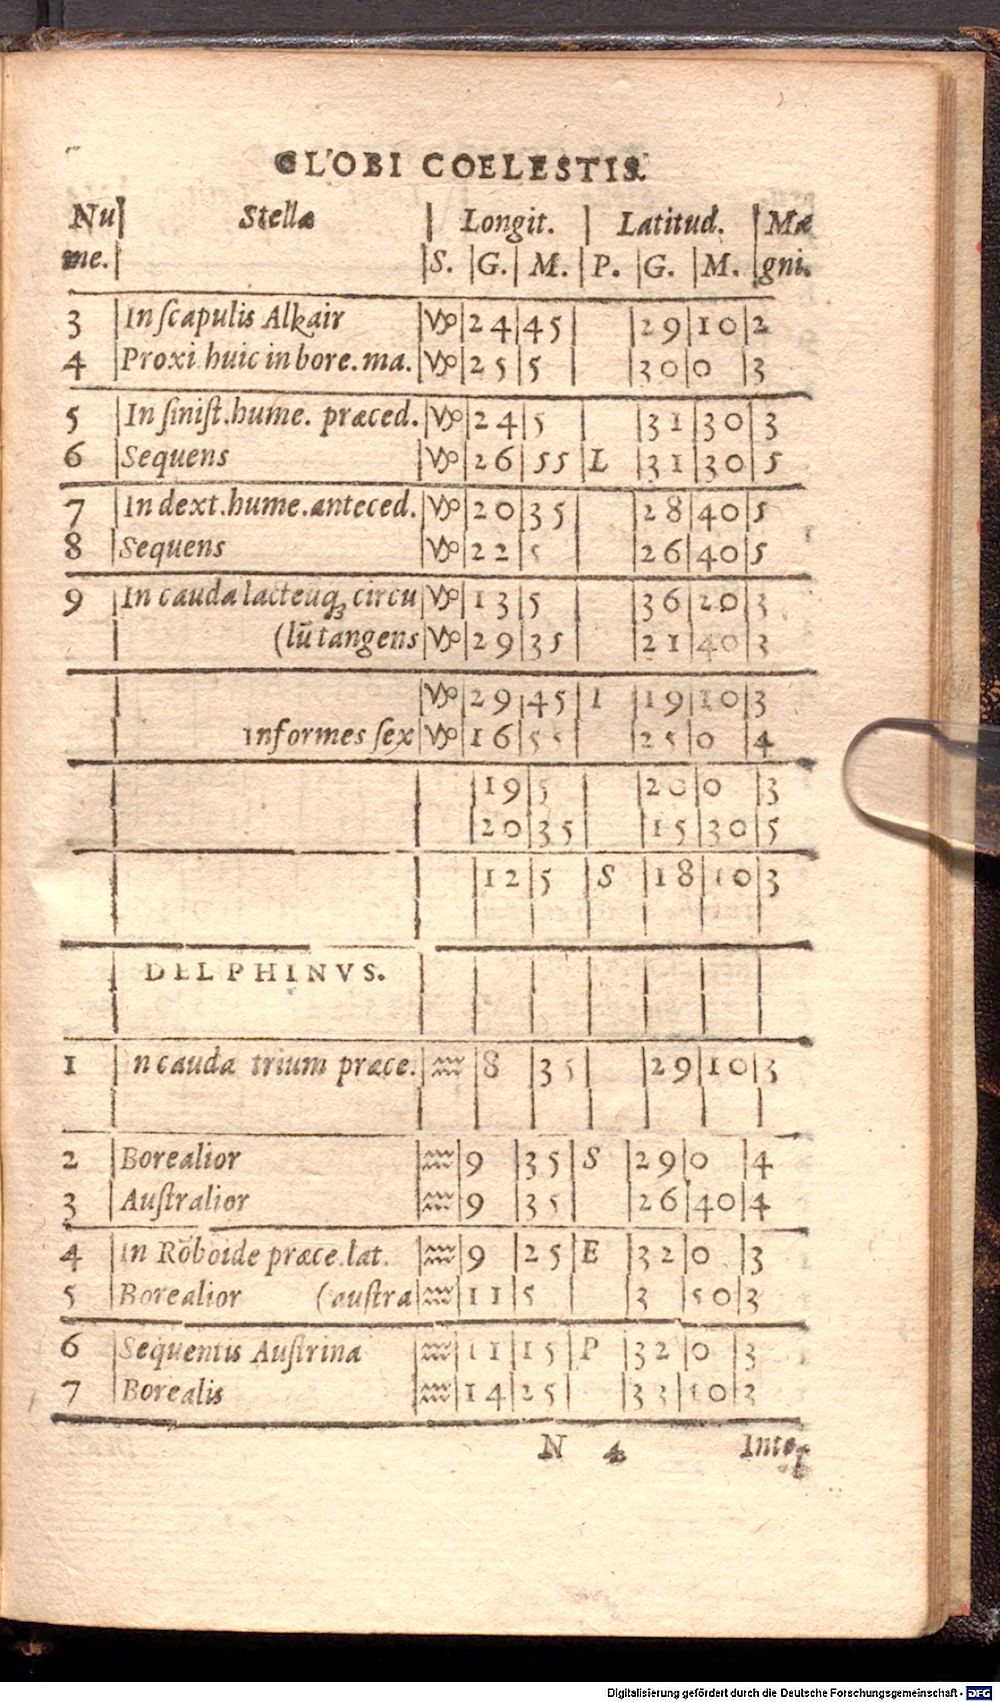 GLOBI COELESTIS.
Nu| Stellæ | Longit. | Latitud. | Mæ
me.| |S. |G.| M. |P. |G. |M. |gni.
3 |In ſcapulis Alkair |♑|24|45| |29|10|2
4 |Proxi.huic in bore.ma.|♑|25|5 | |30|0 |3
5 |In ſiniſt.hume. præced.|♑|24|5 | |31|30|3
6 |Sequens |♑|26|55|L |31|30|5
7 |In dext.hume.anteced.|♑|20|35| |28|40|5
8 |Sequens |♑|22|5 | |26|40|5
9 |In cauda lacteuqꝫ circu|♑|13|5 | |36|20|3
| (lū tangens|♑|29|35| |21|40|3
| |♑|29|45|I |19|10|3
| informes ſex|♑|16|55| |25|0 |4
| | |19|5 | |20|0 |3
| | |20|35| |15|30|5
| | |12|5 |S |18|10|3
| DELPHINVS. | | | | | | |
1 | n cauda trium præce.|♒|8 |35| |29|10|3
2 |Borealior |♒|9 |35|S |29|0 |4
3 |Auſtralior |♒|9 |35| |26|40|4
4 |In Rōboide præce.lat. |♒|9 |25|E |32|0 |3
5 |Borealior (auſtra|♒|11|5 | |3 |50|3
6 |Sequentis Auſtrina |♒|11|15|P |32|0 |3
7 |Borealis |♒|14|25| |33|10|3
N 4 Inte.
Digitalisierung gefördert durch die Deutsche Forschungsgemeinschaft - DFG